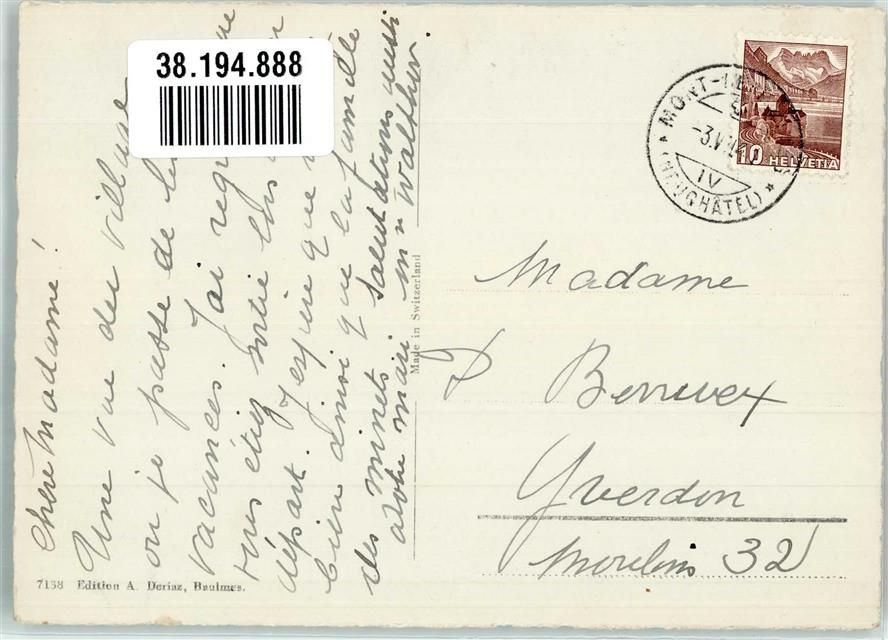 38.194.888
Chère Madame!
Une vue du village
où je passe de
vacances. J'ai
vous étiez sortie lors
départ. J'espère que
bien ainsi que la famille
des minets Salutations aussi
à votre mari Mr Walther.
Made in Switzerland
7158 Edition A. Deriaz, Baulmes.
MONT-
-3.V
IV
(NEUCHÂTEL) *
10 HELVETIA
Madame
P Berruex
Yverdon
Moulins 32